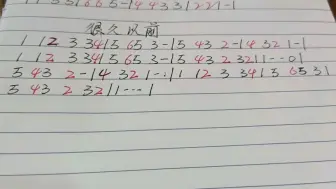 1 1 3 3 5 1 6 6 5 - 1 4 4 3 3 1 2 2 1 - 1
很久以前
1 1 2 3 3 4 1 5 6 5 3 - 1 5 4 3 2 - 1 4 3 2 1 - 1
1 1 2 3 3 4 1 5 6 5 3 - 1 5 4 3 2 3 2 1 1 - - 0 1
5 4 3 2 - 1 4 3 2 1 - : 1 1 1 2 3 3 4 1 5 6 5 3 1
5 4 3 2 3 2 1 1 - - - 1